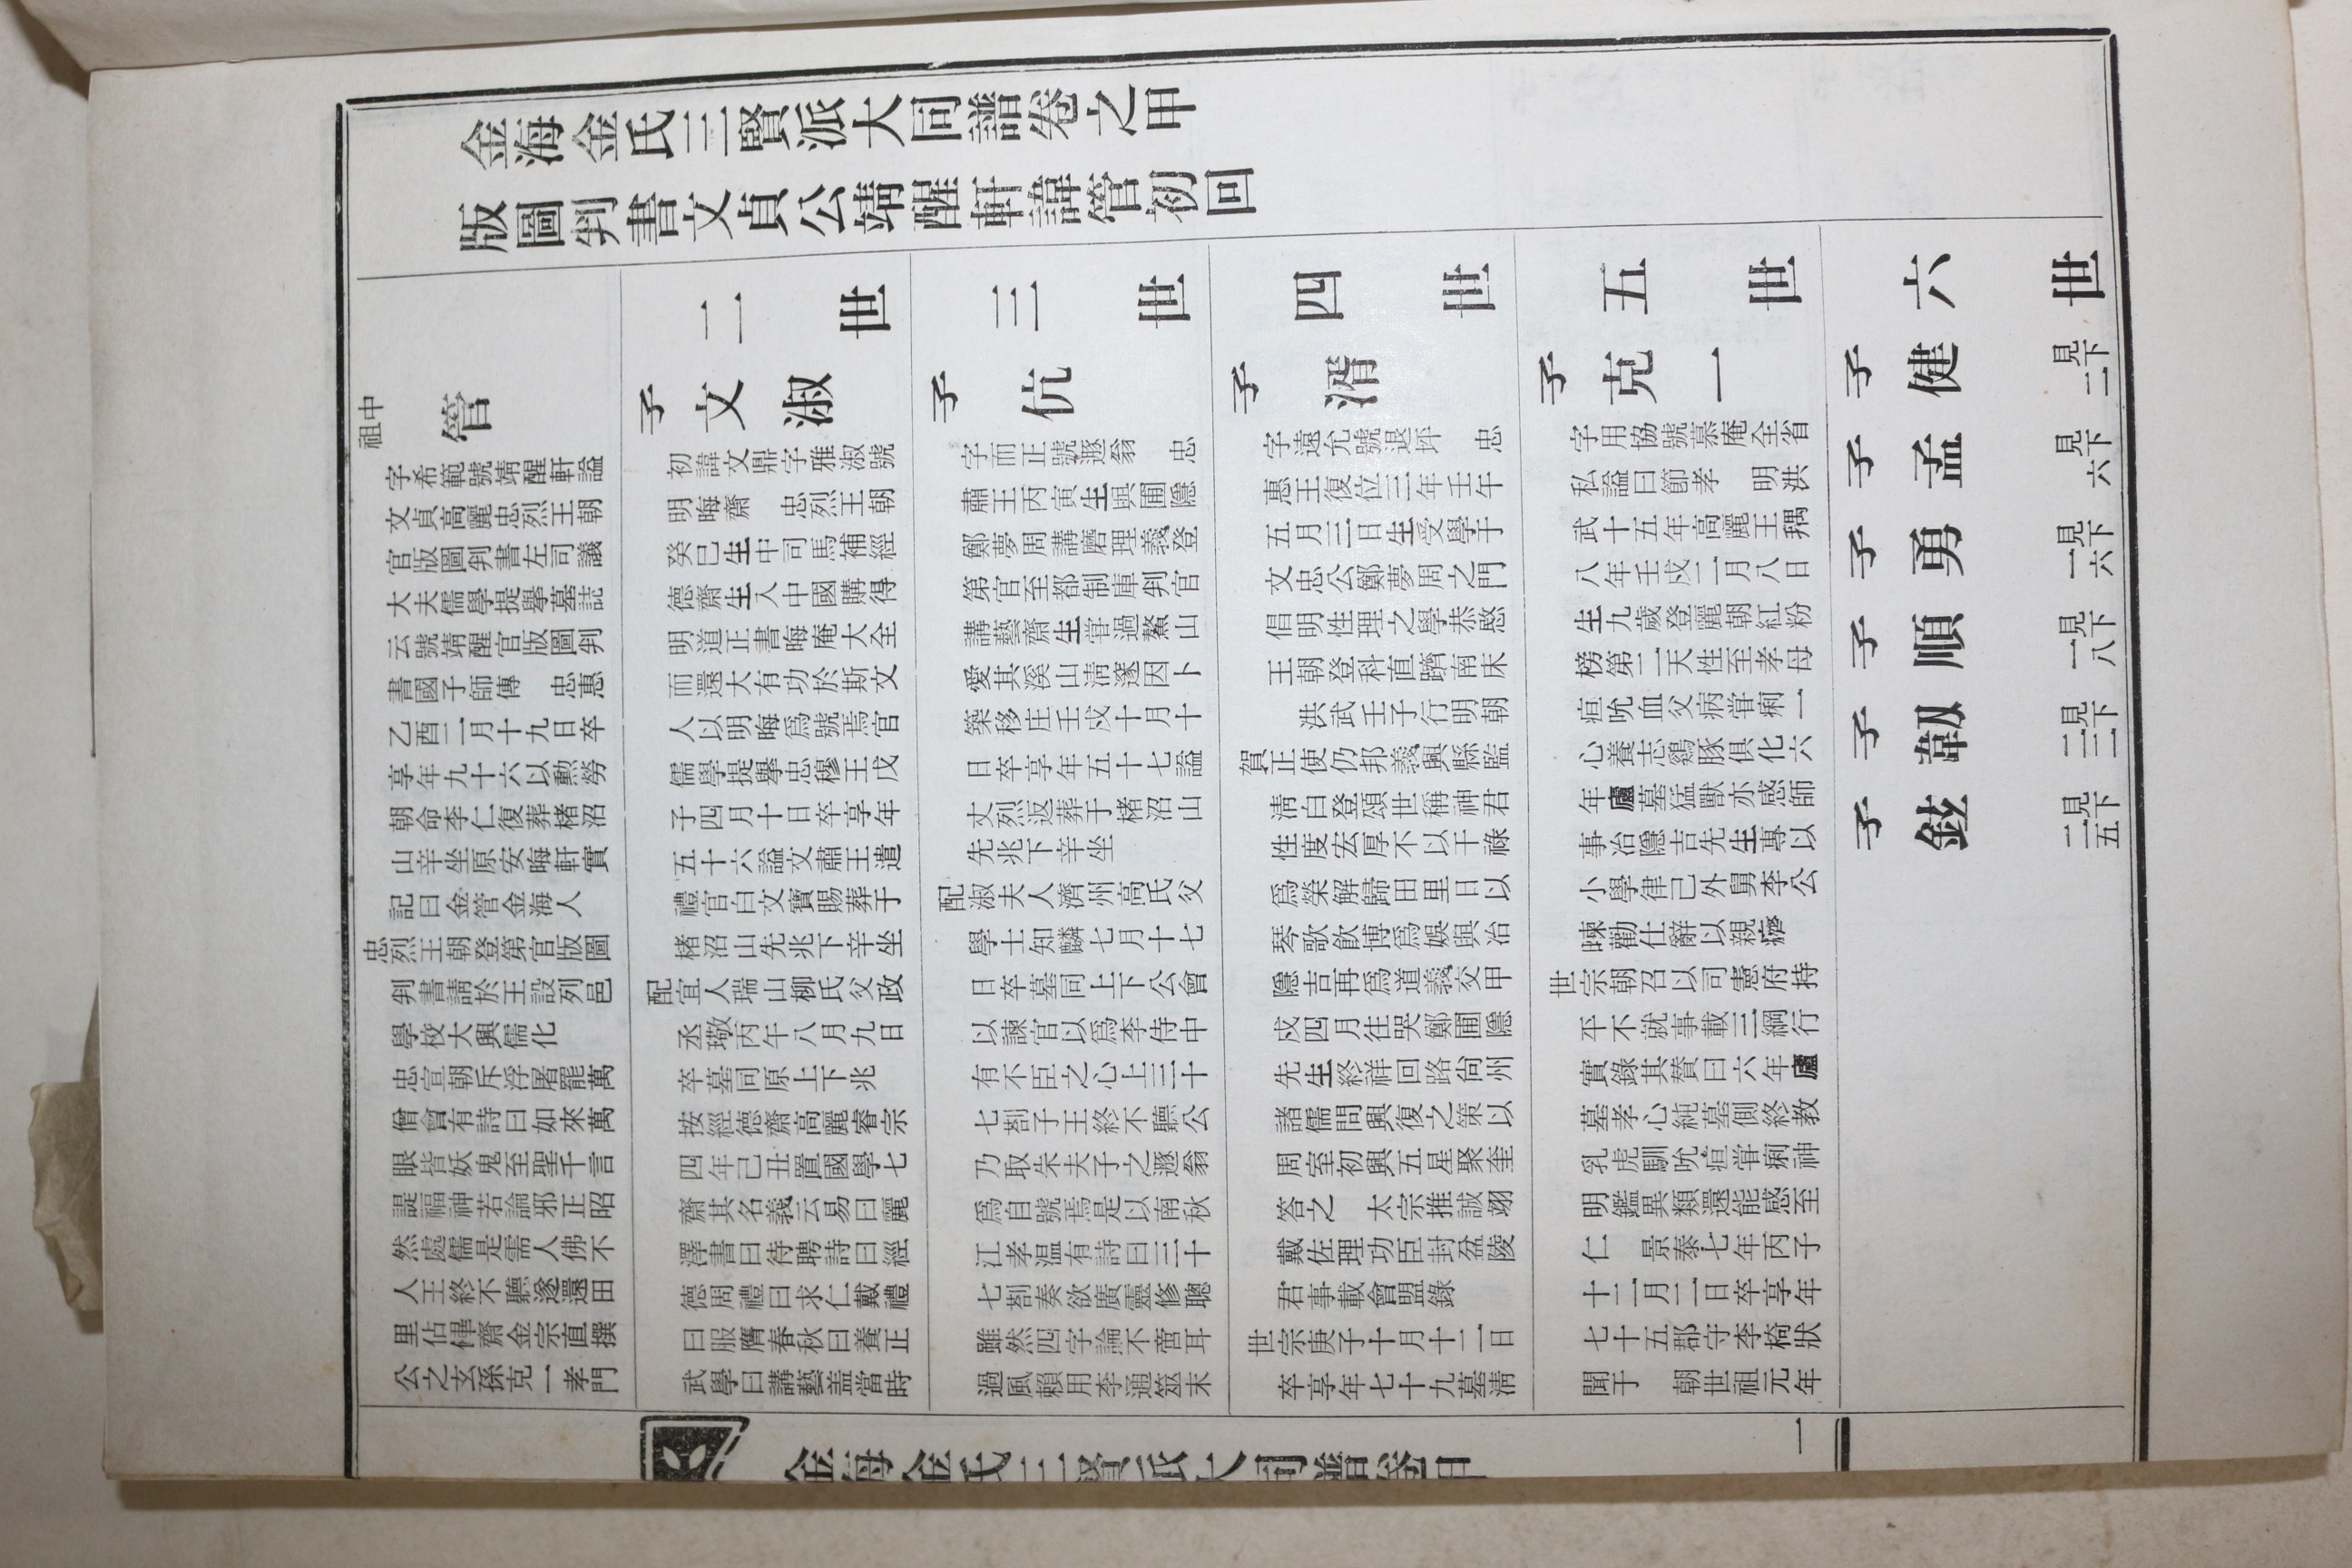 金海金氏三賢派大同譜卷之甲
版圖判書文貞公靖醒軒諱管初回
中祖
管
字希範號靖醒軒謚
文貞高麗忠烈王朝
官版圖判書左司議
大夫儒學提擧墓誌
云號靖醒官版圖判
書國子師傳　忠惠
乙酉二月十九日卒
享年九十六以勲勞
朝命李仁復葬楮沼
山辛坐原安晦軒實
記曰金管金海人
忠烈王朝登第官版圖
判書請於王設列邑
學校大興儒化
忠宣朝斥浮屠罷萬
僧會有詩曰如來萬
眼皆妖鬼至聖千言
諟福神若論邪正昭
然處儒是需人佛不
人王終不聽遂還田
里佔俾齋金宗直撰
公之玄孫克一孝門
二世
子文淑
初諱文鼎字雅淑號
明晦齋　忠烈王朝
癸巳生中司馬補經
德齋生入中國購得
明道正書晦庵大全
而還大有功於斯文
人以明晦爲號焉官
儒學提擧忠穆王戊
子四月十日卒享年
五十六謚文肅王遣
禮官白文寶賜葬于
楮沼山先兆下辛坐
配宜人瑞山柳氏父政
丞璥丙午八月九日
卒墓同原上下兆
按經德齋高麗睿宗
四年己丑置國學七
齋其名義云易曰麗
澤書曰待聘詩曰經
德周禮曰求仁戴禮
曰服膺春秋曰養正
武學曰講藝盖當時
三世
子伉
字而正號遯翁　忠
肅王丙寅生與圃隱
鄭夢周講磨理義登
第官至都制庫判官
講藝齋生甞過鰲山
愛其溪山清邃因卜
築移庄壬戍十月十
日卒享年五十七謚
丈烈返葬于楮沼山
先兆下辛坐
配淑夫人濟州高氏父
學士知麟七月十七
日卒墓同上下公會
以諫官以爲李侍中
有不臣之心上三十
七劄子王終不聽公
乃取朱夫子之遯翁
爲自號焉是以南秋
江孝温有詩曰三十
七劄奏欲廣靈修聰
雖然四字論不啻耳
過風賴用李通筮末
四世
子湑
字遠允號退坪　忠
惠王復位三年壬午
五月三日生受學于
文忠公鄭夢周之門
倡明性理之學恭愍
王朝登科直躋南床
洪武壬子行明朝
賀正使仍邦義興縣監
清白登頌世稱神君
性度宏厚不以干祿
爲榮解歸田里日以
琴歌飮博爲娛與冶
隱吉再爲道義交甲
戍四月往哭鄭圃隱
先生終祥回路尙州
諸儒問興復之策以
周室初興五星聚奎
答之　太宗推誠翊
戴佐理功臣封盆陵
君事載會盟錄
世宗庚子十月十二日
卒享年七十九墓淸
五世
子克一
字用協號慕庵全省
私謚曰節孝　明洪
武十五年高麗王禑
八年壬戍二月八日
生九歲登麗朝紅粉
榜第二天性至孝母
疽吮血父病甞痢一
心養志鷄豚俱化六
年廬墓猛獸亦感師
事冶隱吉先生專以
小學律己外舅李公
暕勸仕辭以親癠
世宗朝召以司憲府持
平不就事載三綱行
實錄其賛曰六年廬
墓孝心純墓側終教
乳虎馴吮疽甞痢神
明鑑異類還能感至
仁　景泰七年丙子
十二月二日卒享年
七十五郡守李椅狀
聞于　朝世祖元年
六世
子健　見下二
子孟　見下六
子勇　見下一六
子順　見下一八
子韌　見下二二
子鉉　見下二五
金海金氏三賢派大同譜卷甲
一